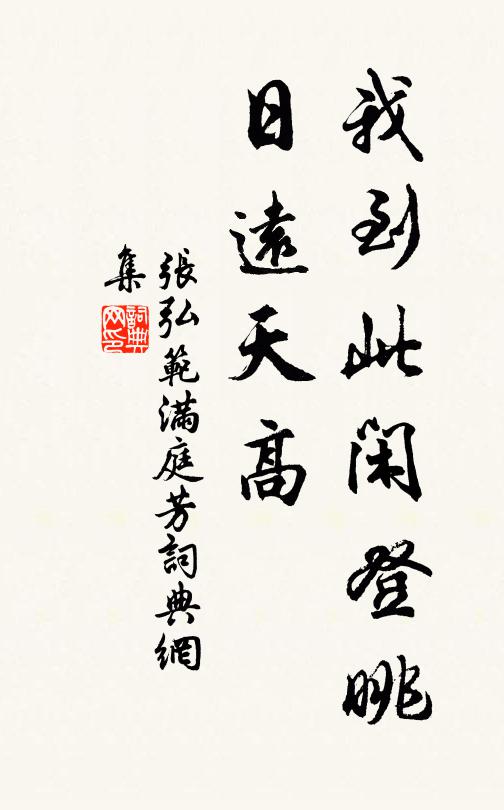 我到此閑登眺
日遠天高
張弘範滿庭芳詞典網
集
詞典网印